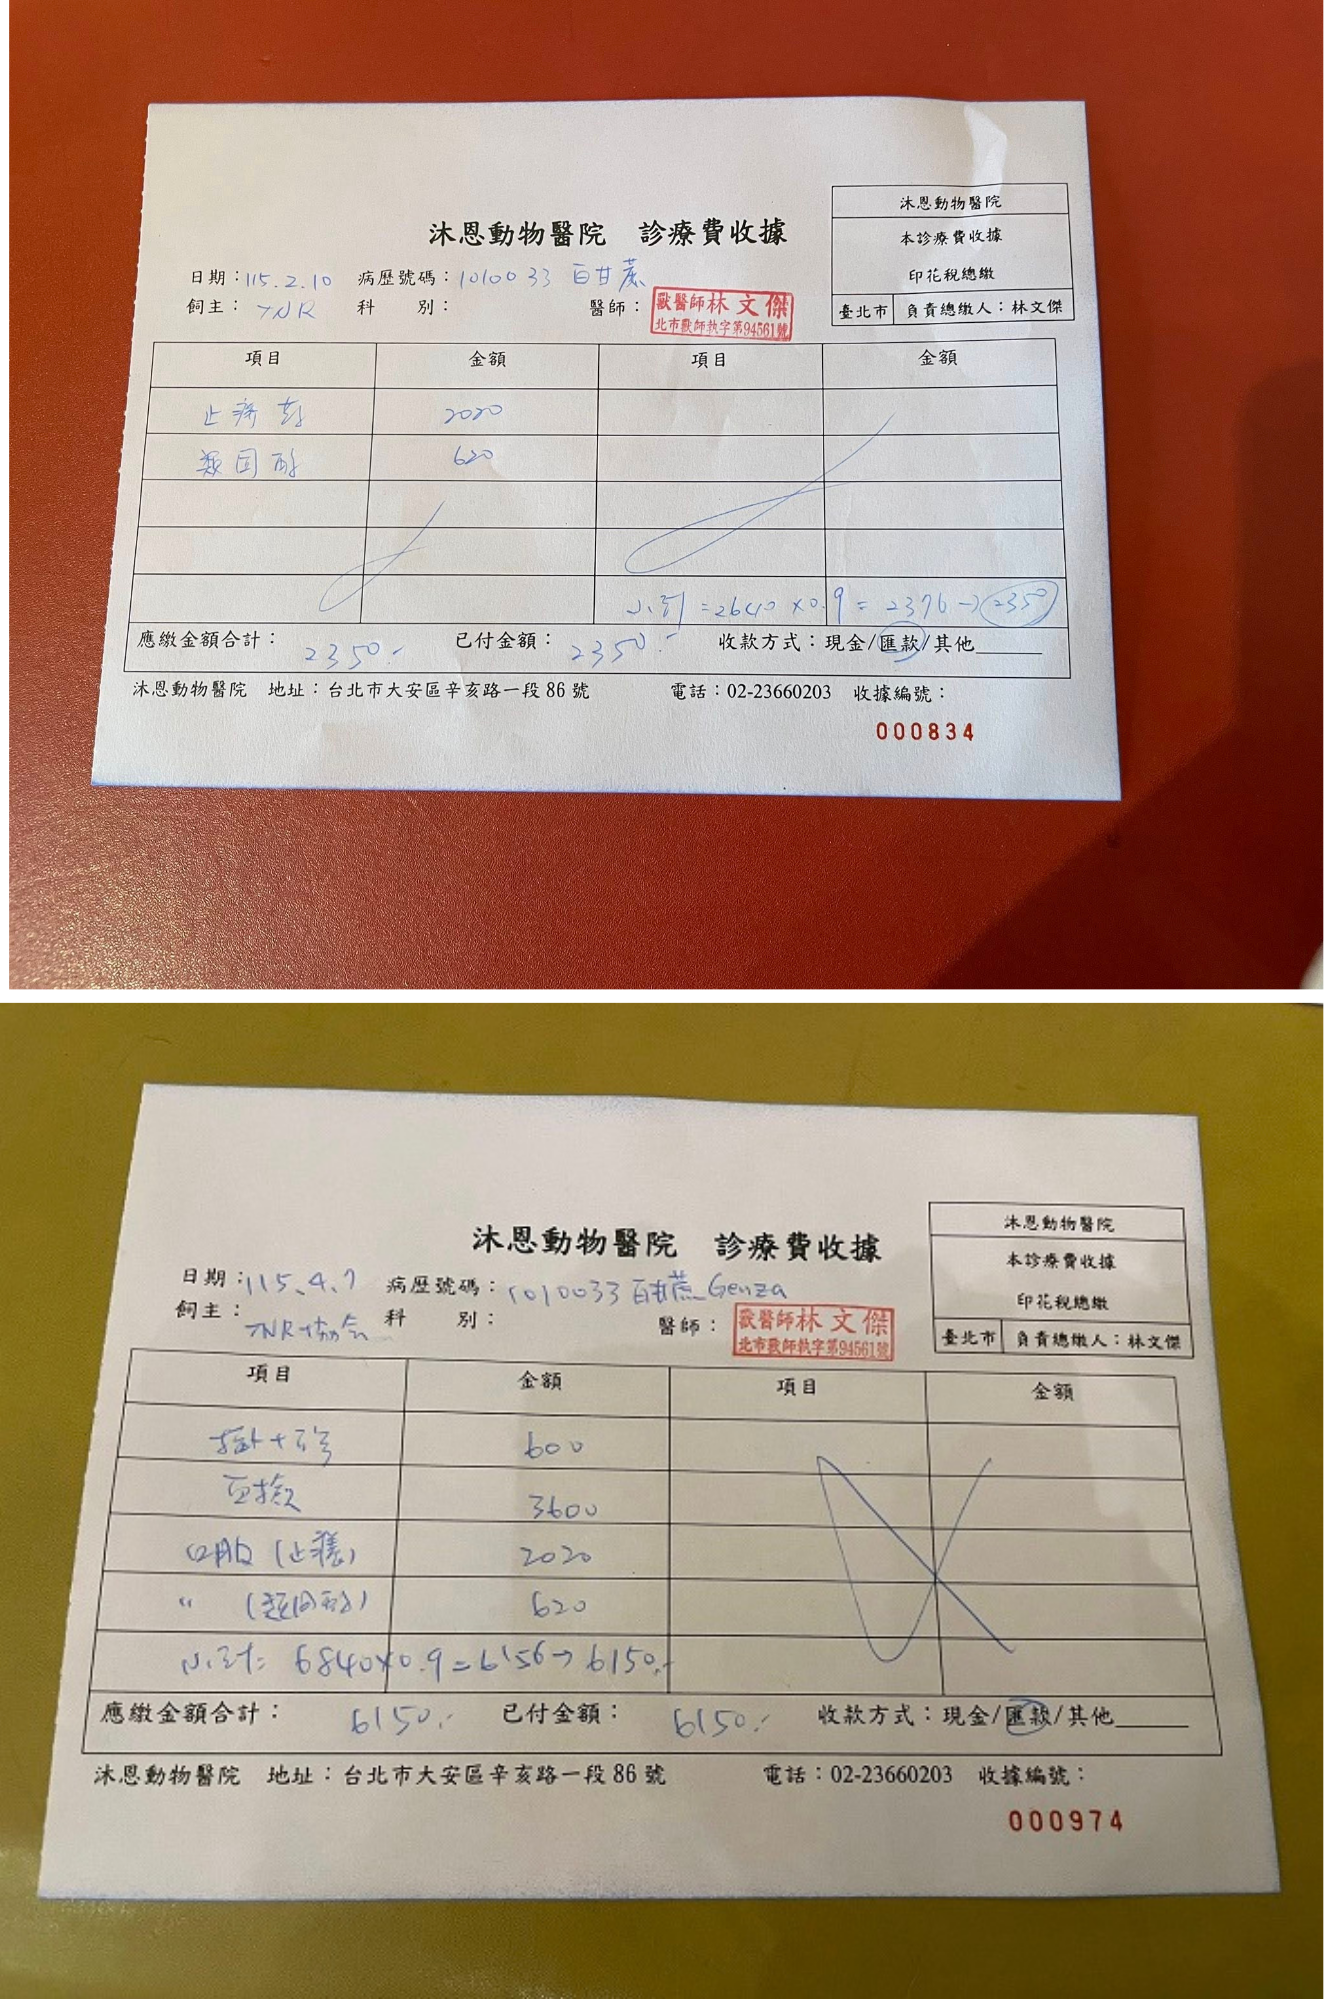 沐恩動物醫院
本診療費收據
印花稅總繳
臺北市 負責總繳人：林文傑
沐恩動物醫院 診療費收據
日期：115.2.10 病歷號碼：1010033 白甘蔗
飼主：TNR 科 別： 醫師：獸醫師林文傑
北市獸師執字第94561號
項目 金額 項目 金額
2020
類固醇 620
小計=2640×0.9=2376→2350
應繳金額合計：2350.- 已付金額：2350.- 收款方式：現金/匯款/其他
沐恩動物醫院 地址：台北市大安區辛亥路一段 86 號 電話：02-23660203 收據編號：
000834
沐恩動物醫院
本診療費收據
印花稅總繳
臺北市 負責總繳人：林文傑
沐恩動物醫院 診療費收據
日期：115.4.7 病歷號碼：1010033 白甘蔗 Genza
飼主：TNR協会 科 別： 醫師：獸醫師林文傑
北市獸師執字第94561號
項目 金額 項目 金額
600
3600
口服(止癢) 2020
〃 (類固醇) 620
小計= 6840×0.9=6156→6150.-
應繳金額合計：6150.- 已付金額：6150.- 收款方式：現金/匯款/其他
沐恩動物醫院 地址：台北市大安區辛亥路一段 86 號 電話：02-23660203 收據編號：
000974